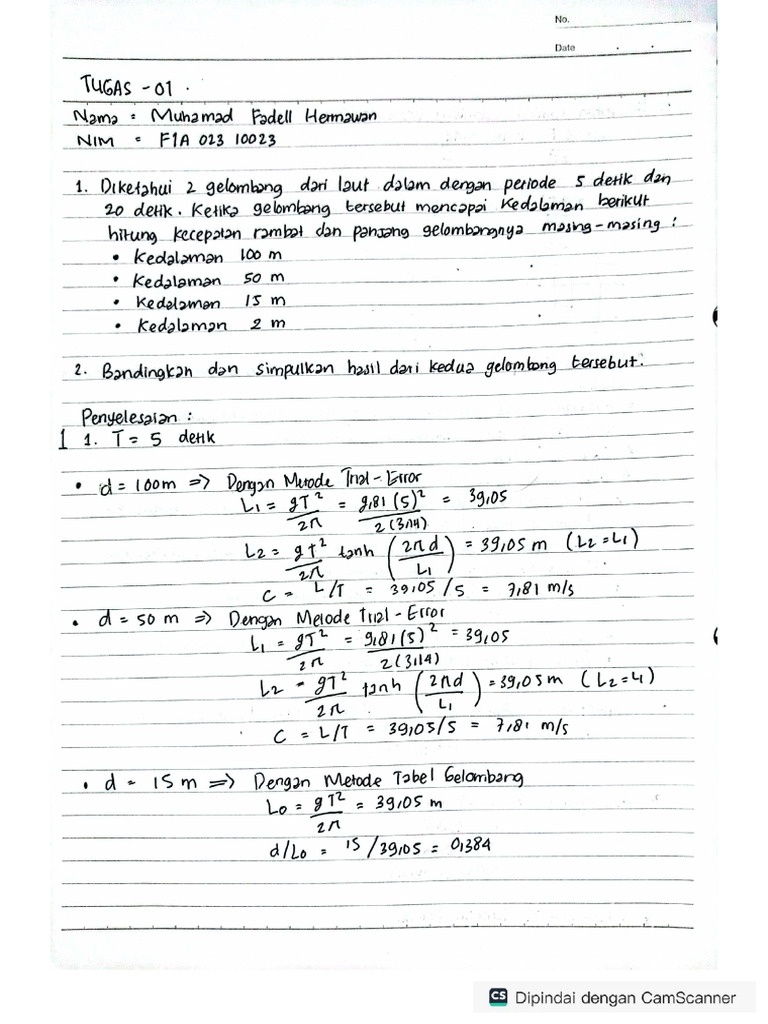 No.
Date
TUGAS - 01 .
Nama = Muhamad Fadell Hermawan
NIM = F1A 023 10023
1. Diketahui 2 gelombang dari laut dalam dengan periode 5 detik dan
20 detik. Ketika gelombang tersebut mencapai kedalaman berikut
hitung kecepatan rambat dan panjang gelombangnya masing-masing :
• Kedalaman 100 m
• Kedalaman 50 m
• Kedalaman 15 m
• Kedalaman 2 m
2. Bandingkan dan simpulkan hasil dari kedua gelombang tersebut.
Penyelesaian :
1 1. T = 5 detik
• d = 100m => Dengan Metode Trial - Error
L1 = gT²/2π = 9,81(5)²/2(3,14) = 39,05
L2 = gT²/2π tanh (2πd/L1) = 39,05 m (L2 = L1)
C = L/T = 39,05/5 = 7,81 m/s
• d = 50 m => Dengan Metode Trial - Error
L1 = gT²/2π = 9,81(5)²/2(3,14) = 39,05
L2 = gT²/2π tanh (2πd/L1) = 39,05m (L2 = L1)
C = L/T = 39,05/5 = 7,81 m/s
• d = 15 m => Dengan Metode Tabel Gelombang
Lo = gT²/2π = 39,05 m
d/Lo = 15/39,05 = 0,384
CS Dipindai dengan CamScanner